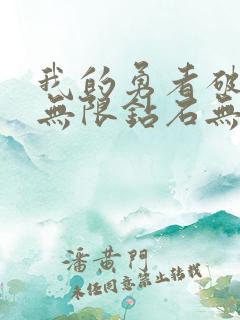 我的勇者破
無限鉆石無
潘黄門
未经同意禁止转载